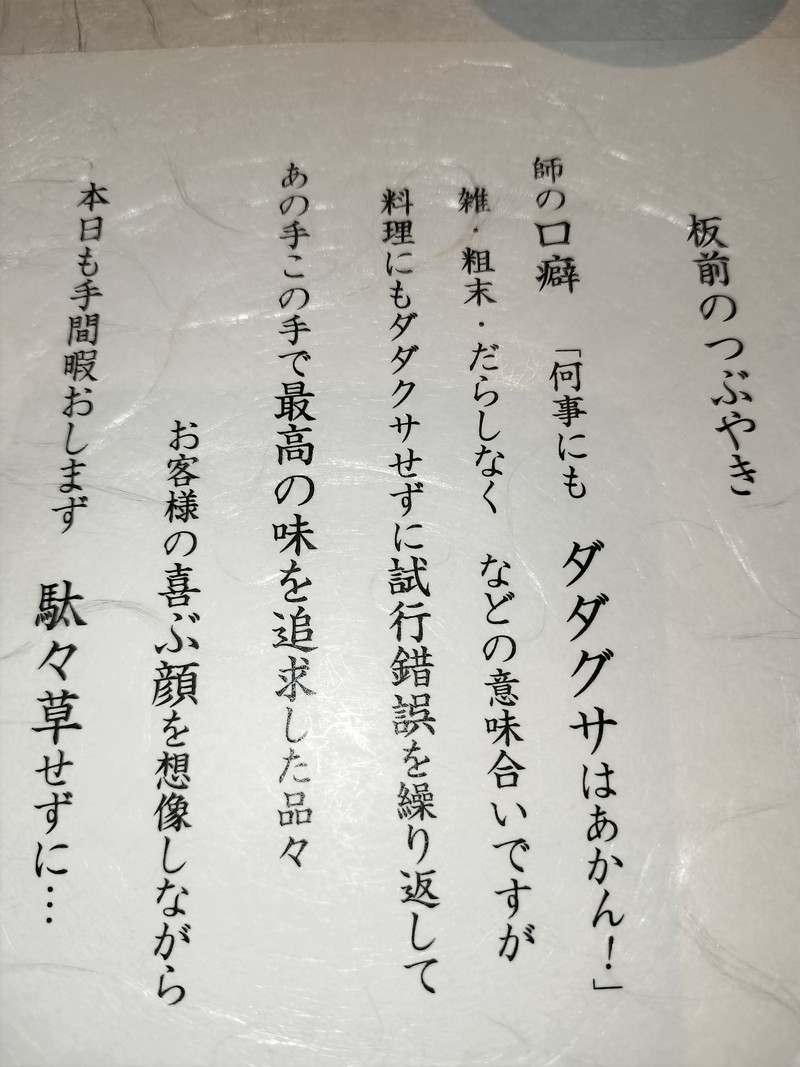 板前のつぶやき
師の口癖 「何事にも ダダグサはあかん！」
雑・粗末・だらしなく などの意味合いですが
料理にもダダクサせずに試行錯誤を繰り返して
あの手この手で最高の味を追求した品々
お客様の喜ぶ顔を想像しながら
本日も手間暇おしまず 駄々草せずに…